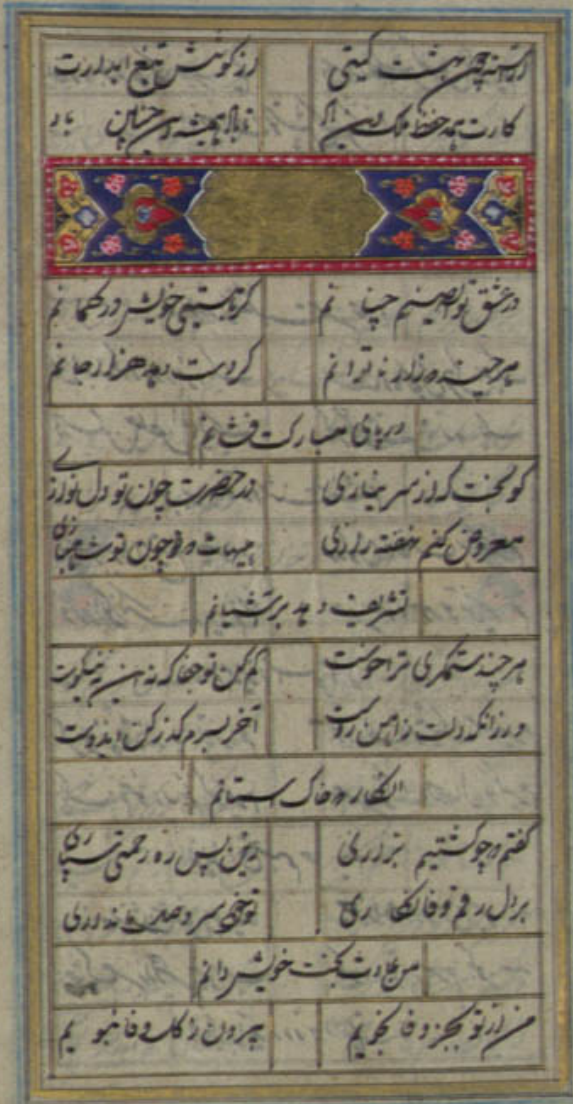 آراسته چون بهشت گیتی از کوشش تیغ آبدارت
کارت همه حفظ ملک و دین باد تا باد همیشه این چنین باد
در عشق تو ای صنم چنانم کز هستی خویش در گمانم
هر چند که زار و ناتوانم گر دست دهد هزار جانم
در پای مبارکت فشانم
کو بخت که از سر نیازی در حضرت چون تو دل نوازی
معروض کنم نهفته رازی هیهات که چون تو شاهبازی
تشریف دهد بر آشیانم
هر چند ستمگری ترا خوست کم کن تو جفا که نه این نیکوست
ورزانکه دلت ز آهن و روست آخر بسرم گذر کن ای دوست
انگار که خاک آستانم
گفتم که چو کشتیم بزاری زین پس ره رحمتی سپاری
بر دل رقم وفا نگاری تو خود سر وصل ما نداری
من عادت بخت خویش دانم
من از تو بجز وفا نجویم بیرون ز گل وفا نبویم